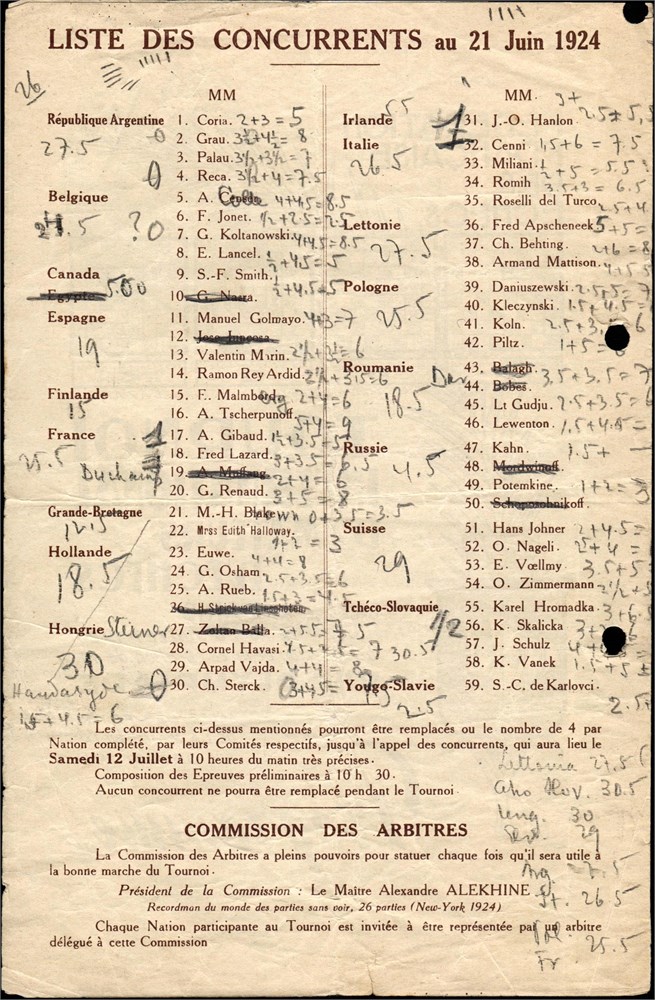 LISTE DES CONCURRENTS au 21 Juin 1924
26
MM
République Argentine 1. Coria. 2+3=5
27.5
2. Grau. 3½+4½=8
3. Palau. 3½+3½=7
0 4. Reca. 3½+4=7.5
Belgique 5. A. 4+4.5=8.5
?0 6. F. Jonet. ½+2.5=2.5
7. G. Koltanowski. 4+4.5=8.5
8. E. Lancel. ½+4.5=5
Canada 9. S.-F. Smith. ½+4.5=5
5.00
Egypte 10. G. Nasra.
Espagne 11. Manuel Golmayo. 4+3=7
19
12. Jose
13. Valentin Marin.
14. Ramon Rey Ardid. 2½+3.5=6
Finlande 15. F. Malmborg 2+4=6
15
16. A. Tscherpunoff. 5+4=9
France 1 17. A. Gibaud. 1½+3.5=5
25.5
Duchamp
18. Fred Lazard. 3+3.5=6.5
19. A. Muffang. 2+4=6
20. G. Renaud. 3+5=8
Grande-Bretagne 21. M.-H. Blake
12.5
22. Mrss Edith Halloway.
Hollande 23. Euwe. 4+4=8
18.5
24. G. Osham. 2.5+3.5=6
25. A. Rueb. 1.5+3=4.5
26.
Hongrie Steiner 27. Zoltan Balla. 2+5.5=7.5
30
28. Cornel Havasi.
29. Arpad Vajda. 4+4=8
0 30. Ch. Sterck. 3+4.5=7.5
Handasyde
1.5+4.5=6
MM.
Irlande 31. J.-O. Hanlon.
55
Italie 32. Cenni 1,5+6=7.5
26.5
33. Miliani.
34. Romih 3.5+3=6.5
35. Roselli del Turco. 2.5+4
Lettonie 36. Fred Apscheneek
27.5
37. Ch. Behting. 2+6=8
38. Armand Mattison.
Pologne 39. Daniuszewski.
25.5
40. Kleczynski.
41. Koln.
42. Piltz. 1+5=
Roumanie 43. Balagh. 3.5+3.5=7
18.5
44. Bobes.
45. Lt Gudju. 2.5+3.5=6
46. Lewenton.
Russie 47. Kahn. 1.5+
4.5
48. Mordwinoff.
49. Potemkine. 1+2=3
50. Schoposchnikoff.
Suisse 51. Hans Johner 2+4.5=
29
52. O. Nageli.
53. E. Vœllmy 3.5+5
54. O. Zimmermann
Tchéco-Slovaquie 55. Karel Hromadka.
1/2 56. K. Skalicka
30.5
57. J. Schulz
58. K. Vanek
Yougo-Slavie 59. S.-C. de Karlovci.
2.5
Les concurrents ci-dessus mentionnés pourront être remplacés ou le nombre de 4 par
Nation complété, par leurs Comités respectifs, jusqu'à l'appel des concurrents, qui aura lieu le
Samedi 12 Juillet à 10 heures du matin très précises.
Composition des Epreuves préliminaires à 10 h 30.
Aucun concourrent ne pourra être remplacé pendant le Tournoi.
Lettonia 27.5
30.5
30
29
Arg
It. 26.5
Pol.
25.5
Fr.
COMMISSION DES ARBITRES
La Commission des Arbitres a pleins pouvoirs pour statuer chaque fois qu'il sera utile à
la bonne marche du Tournoi.
Président de la Commission : Le Maître Alexandre ALEKHINE
Recordman du monde des parties sans voir, 26 parties (New-York 1924)
Chaque Nation participante au Tournoi est invitée à être représentée par un arbitre
délégué à cette Commission